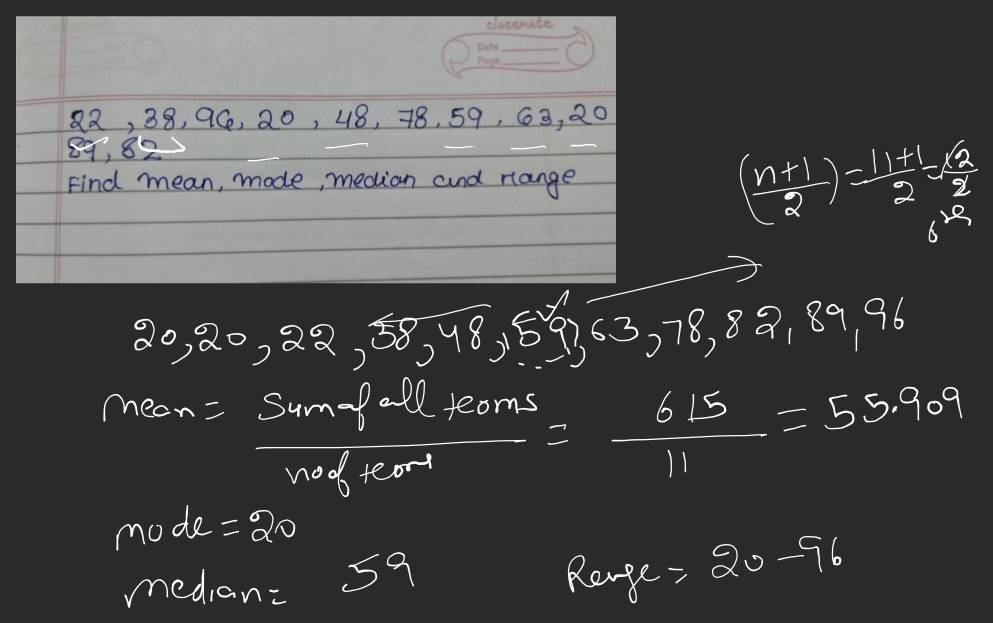 classmate
Date
Page
22, 38, 96, 20, 48, 78, 59, 63, 20
89, 82
Find mean, mode, median and Range
(n+1/2) = 11+1/2 = 12/2
6
20, 20, 22, 38, 48, 59, 63, 78, 82, 89, 96
mean = Sum of all terms / no of terms = 615/11 = 55.909
mode = 20
median = 59
Range = 20 - 96